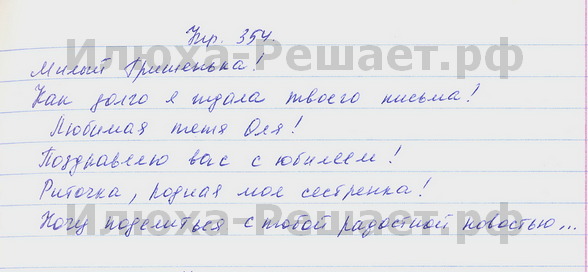 Упр. 354.
Илюха-Решает.рф
Милый Гришенька!
Как долго я ждала твоего письма!
Любимая тётя Оля!
Поздравляю вас с юбилеем!
Риточка, родная моя сестрёнка!
Илюха-Решает.рф
Хочу поделиться с тобой радостной новостью...